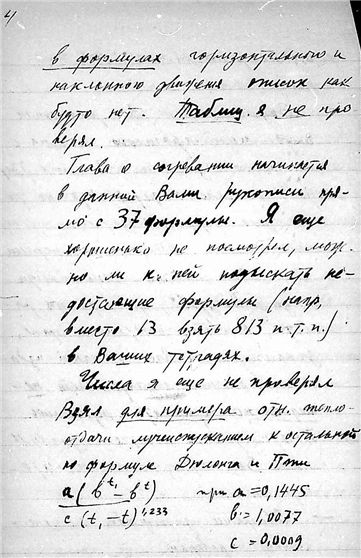 4
в формулах горизонтального и
наклонного движения описок как
будто нет. Таблиц я не про
верял.
Глава о согревании начинается
в данной Вами рукописи пря-
мо с 37 формулы. Я еще
хорошенько не посмотрел, мож-
но ли к ней подыскать не-
достающие формулы (напр,
вместо 13 взять 813 и т. п.)
в Ваших тетрадях.
Числа я еще не проверял
Взял для примера отн. тепло-
отдачи лучеиспусканием к остальной
по формуле Дюлонга и Пти
a(b^t, – b^t) при a = 0,1445
c(t, – t)^1,233 b = 1,0077
c = 0,0009